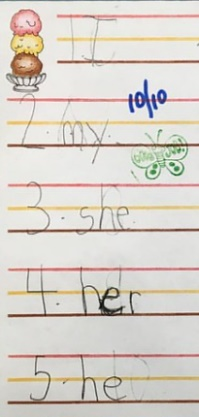 1 I
10/10
2. my.
3. she
4. her
5. he